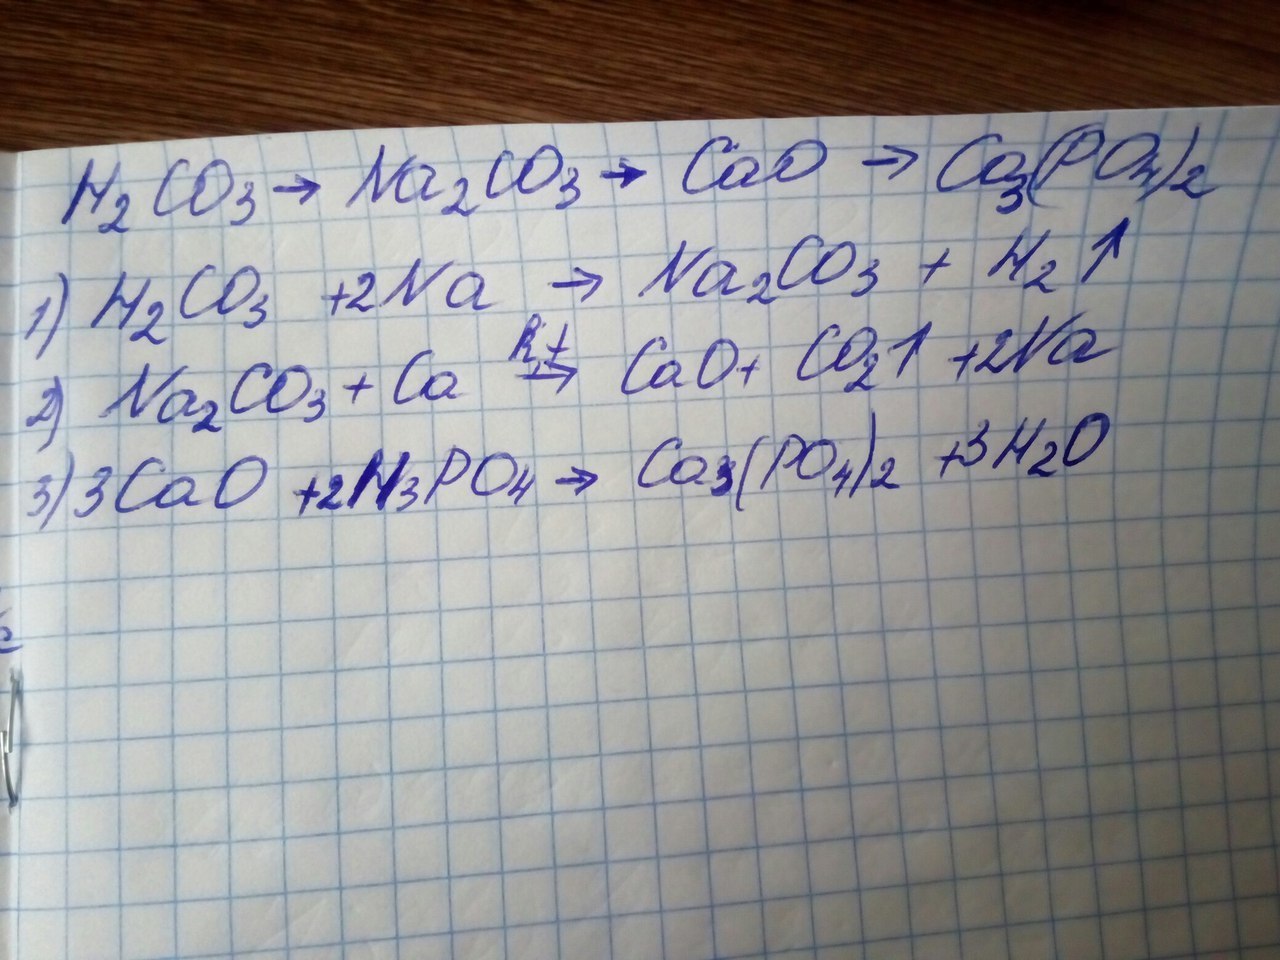 H₂CO₃ → Na₂CO₃ → CaO → Ca₃(PO₄)₂
1) H₂CO₃ +2Na → Na₂CO₃ + H₂↑
2) Na₂CO₃ + Ca → CaO + CO₂↑ +2Na
3) 3CaO +2H₃PO₄ → Ca₃(PO₄)₂ +3H₂O